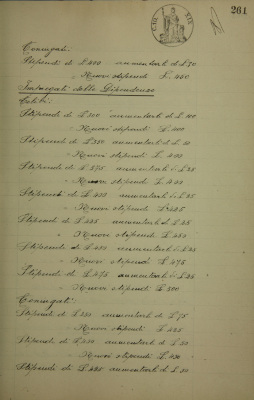 261
Coniugati:
Stipendi di £ 400 aumentati di £ 50
" Nuovi stipendi £ 450
Impiegati delle Dipendenze
Celibi:
Stipendi di £ 300 aumentati di £ 100
" Nuovi stipendi £ 400
Stipendi di £ 350 aumentati di £ 50
" Nuovi stipendi £ 400
Stipendi di £ 375 aumentati di £ 25
" Nuovi stipendi £ 400
Stipendi di £ 400 aumentati di £ 25
" Nuovi stipendi £ 425
Stipendi di £ 425 aumentati di £ 25
" Nuovi stipendi £ 450
Stipendi di £ 450 aumentati di £ 25
" Nuovi stipendi £ 475
Stipendi di £ 475 aumentati di £ 25
" Nuovi stipendi £ 500
Coniugati:
Stipendi di £ 350 aumentati di £ 75
" Nuovi stipendi £ 425
Stipendi di £ 400 aumentati di £ 50
" Nuovi stipendi £ 450
Stipendi di £ 425 aumentati di £ 50